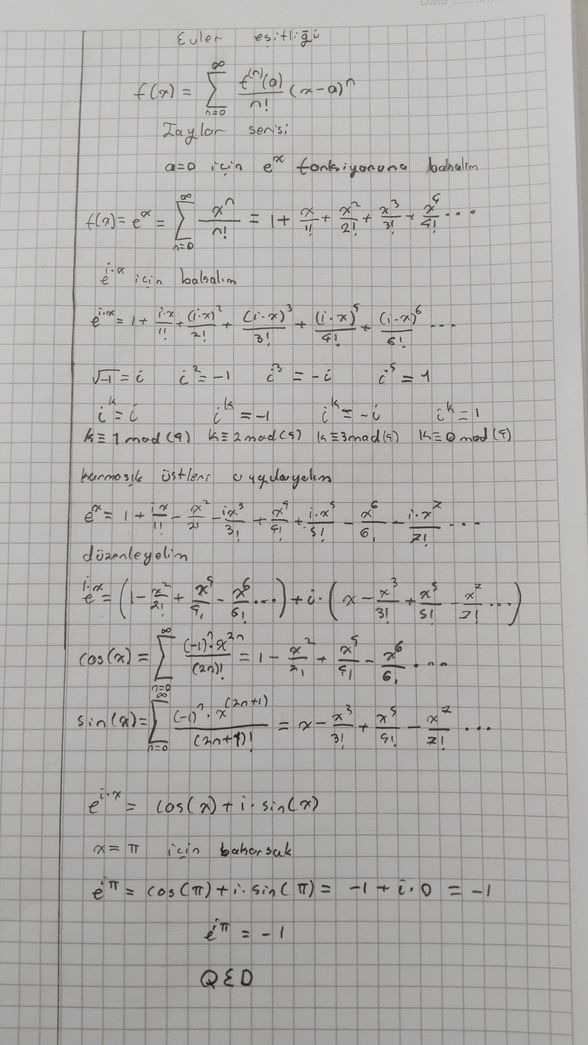 Euler eşitliği
f(x) = ∑_{n=0}^{∞} f^{(n)}(a)/n! (x-a)^n
Taylor serisi
a=0 için e^x fonksiyonuna bakalım
f(x) = e^x = ∑_{n=0}^{∞} x^n/n! = 1 + x/1! + x^2/2! + x^3/3! + x^4/4! ...
e^{i·x} için bakalım
e^{i·x} = 1 + i·x/1! + (i·x)^2/2! + (i·x)^3/3! + (i·x)^5/4! + (i·x)^6/6! ...
√-1 = i i^2 = -1 i^3 = -i i^4 = 1
i^k = i i^k = -1 i^k = -i i^k = 1
k≡1mod(4) k≡2mod(4) k≡3mod(4) k≡0mod(4)
karmaşık üstleri uygulayalım
e^x = 1 + ix/1! - x^2/2! - ix^3/3! + x^4/4! + i·x^5/5! - x^6/6! - i·x^7/7! ...
düzenleyelim
e^{i·x} = (1 - x^2/2! + x^4/4! - x^6/6! ...) + i·(x - x^3/3! + x^5/5! - x^7/7! ...)
cos(x) = ∑_{n=0}^{∞} (-1)^n·x^{2n}/(2n)! = 1 - x^2/2! + x^4/4! - x^6/6! ...
sin(x) = ∑_{n=0}^{∞} (-1)^n·x^{(2n+1)}/(2n+1)! = x - x^3/3! + x^5/5! - x^7/7! ...
e^{i·x} = cos(x) + i·sin(x)
x = π için bakarsak
e^{iπ} = cos(π) + i·sin(π) = -1 + i·0 = -1
e^{iπ} = -1
QED